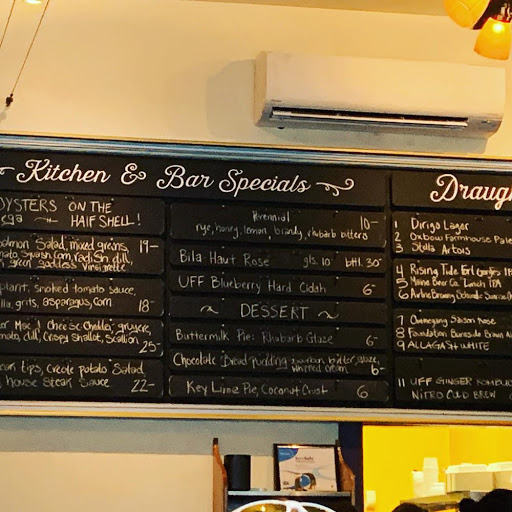 Kitchen & Bar Specials
OYSTERS ON THE
HALF SHELL!
Salmon Salad, mixed greens, 19-
Squash, corn, radish, dill,
green goddess Vinaigrette
plant, smoked tomato sauce,
grits, asparagus, corn 18-
Mac & Cheese: Cheddar, gruyere,
dill, crispy shallot, scallion
25-
tips, creole potato Salad
house Steak Sauce 22-
Perennial 10-
rye, honey, lemon, brandy, rhubarb bitters
Bila Haut Rose gls. 10- btl. 30-
UFF Blueberry Hard Cidah 6-
~ DESSERT ~
Buttermilk Pie: Rhubarb Glaze 6-
Chocolate Bread pudding, bourbon butter glaze,
whipped cream 6-
Key Lime Pie, Coconut Crust 6
Draugh
1 Dirigo Lager
2 Oxbow Farmhouse Pale
3 Stella Artois
4 Rising Tide
5 Maine Beer Co. "Lunch" IPA
6
7 Saison
8 Foundation Burnside Brown
9 ALLAGASH WHITE
11 UFF GINGER KOMBUC
NITRO COLD BREW